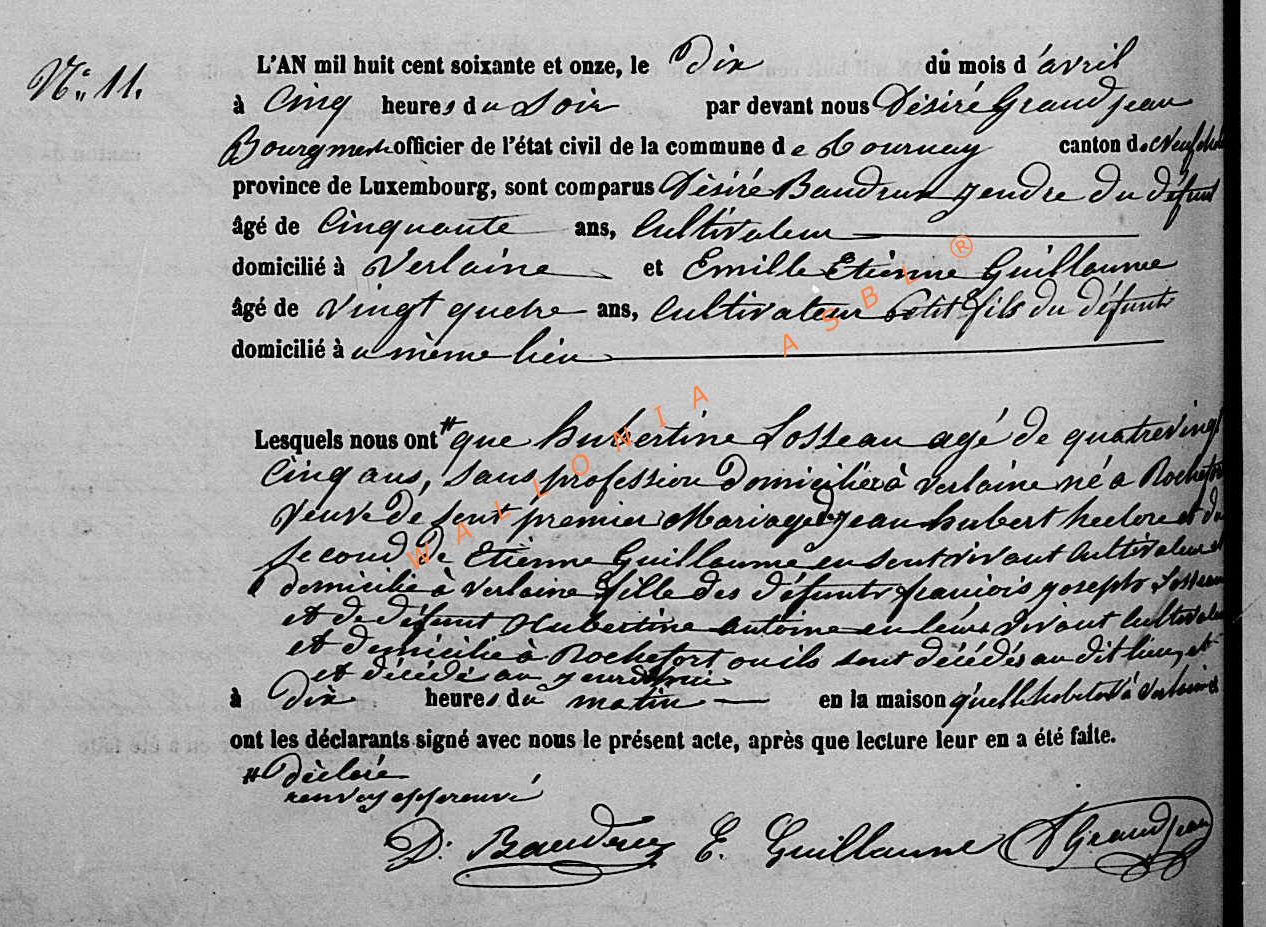 N° 11.
L'AN mil huit cent soixante et onze, le Dix du mois d'avril
à Cinq heures du Soir par devant nous Désiré Grandjean
Bourgmestre officier de l'état civil de la commune de Tournay canton de Neufchât
province de Luxembourg, sont comparus Désiré Baudrux gendre du défunt
âgé de Cinquante ans, Cultivateur
domicilié à Verlaine et Emille Etienne Guillaume
âgé de vingt quatre ans, Cultivateur Petit fils du défunt
domicilié à u même lieu
Lesquels nous ont # que hubertine Losseau agé de quatrevingt
Cinq ans, sans profession Domiciliée à Verlaine né a Rochefort
Veuve de sent premier Mariage de jean hubert heclore et du
second de Etienne Guillaume en sent vivant Cultivateur et
domicilié à Verlaine & fille des défunts franiois joseph Losseau
et de défunt Hubertine Antoine en leurs vivant Cultivateur
et domicilié à Rochefort ou ils sent décédés au dit lieu, et
et décédé au jourdhui
à Dix heures du matin en la maison qu'elle habitait à Verlaine et
ont les déclarants signé avec nous le présent acte, après que lecture leur en a été faite.
# Déclaré
renvoy approuvé
D. Baudrux E. Guillaume D Grandjean
WALLONIA ASBL ®